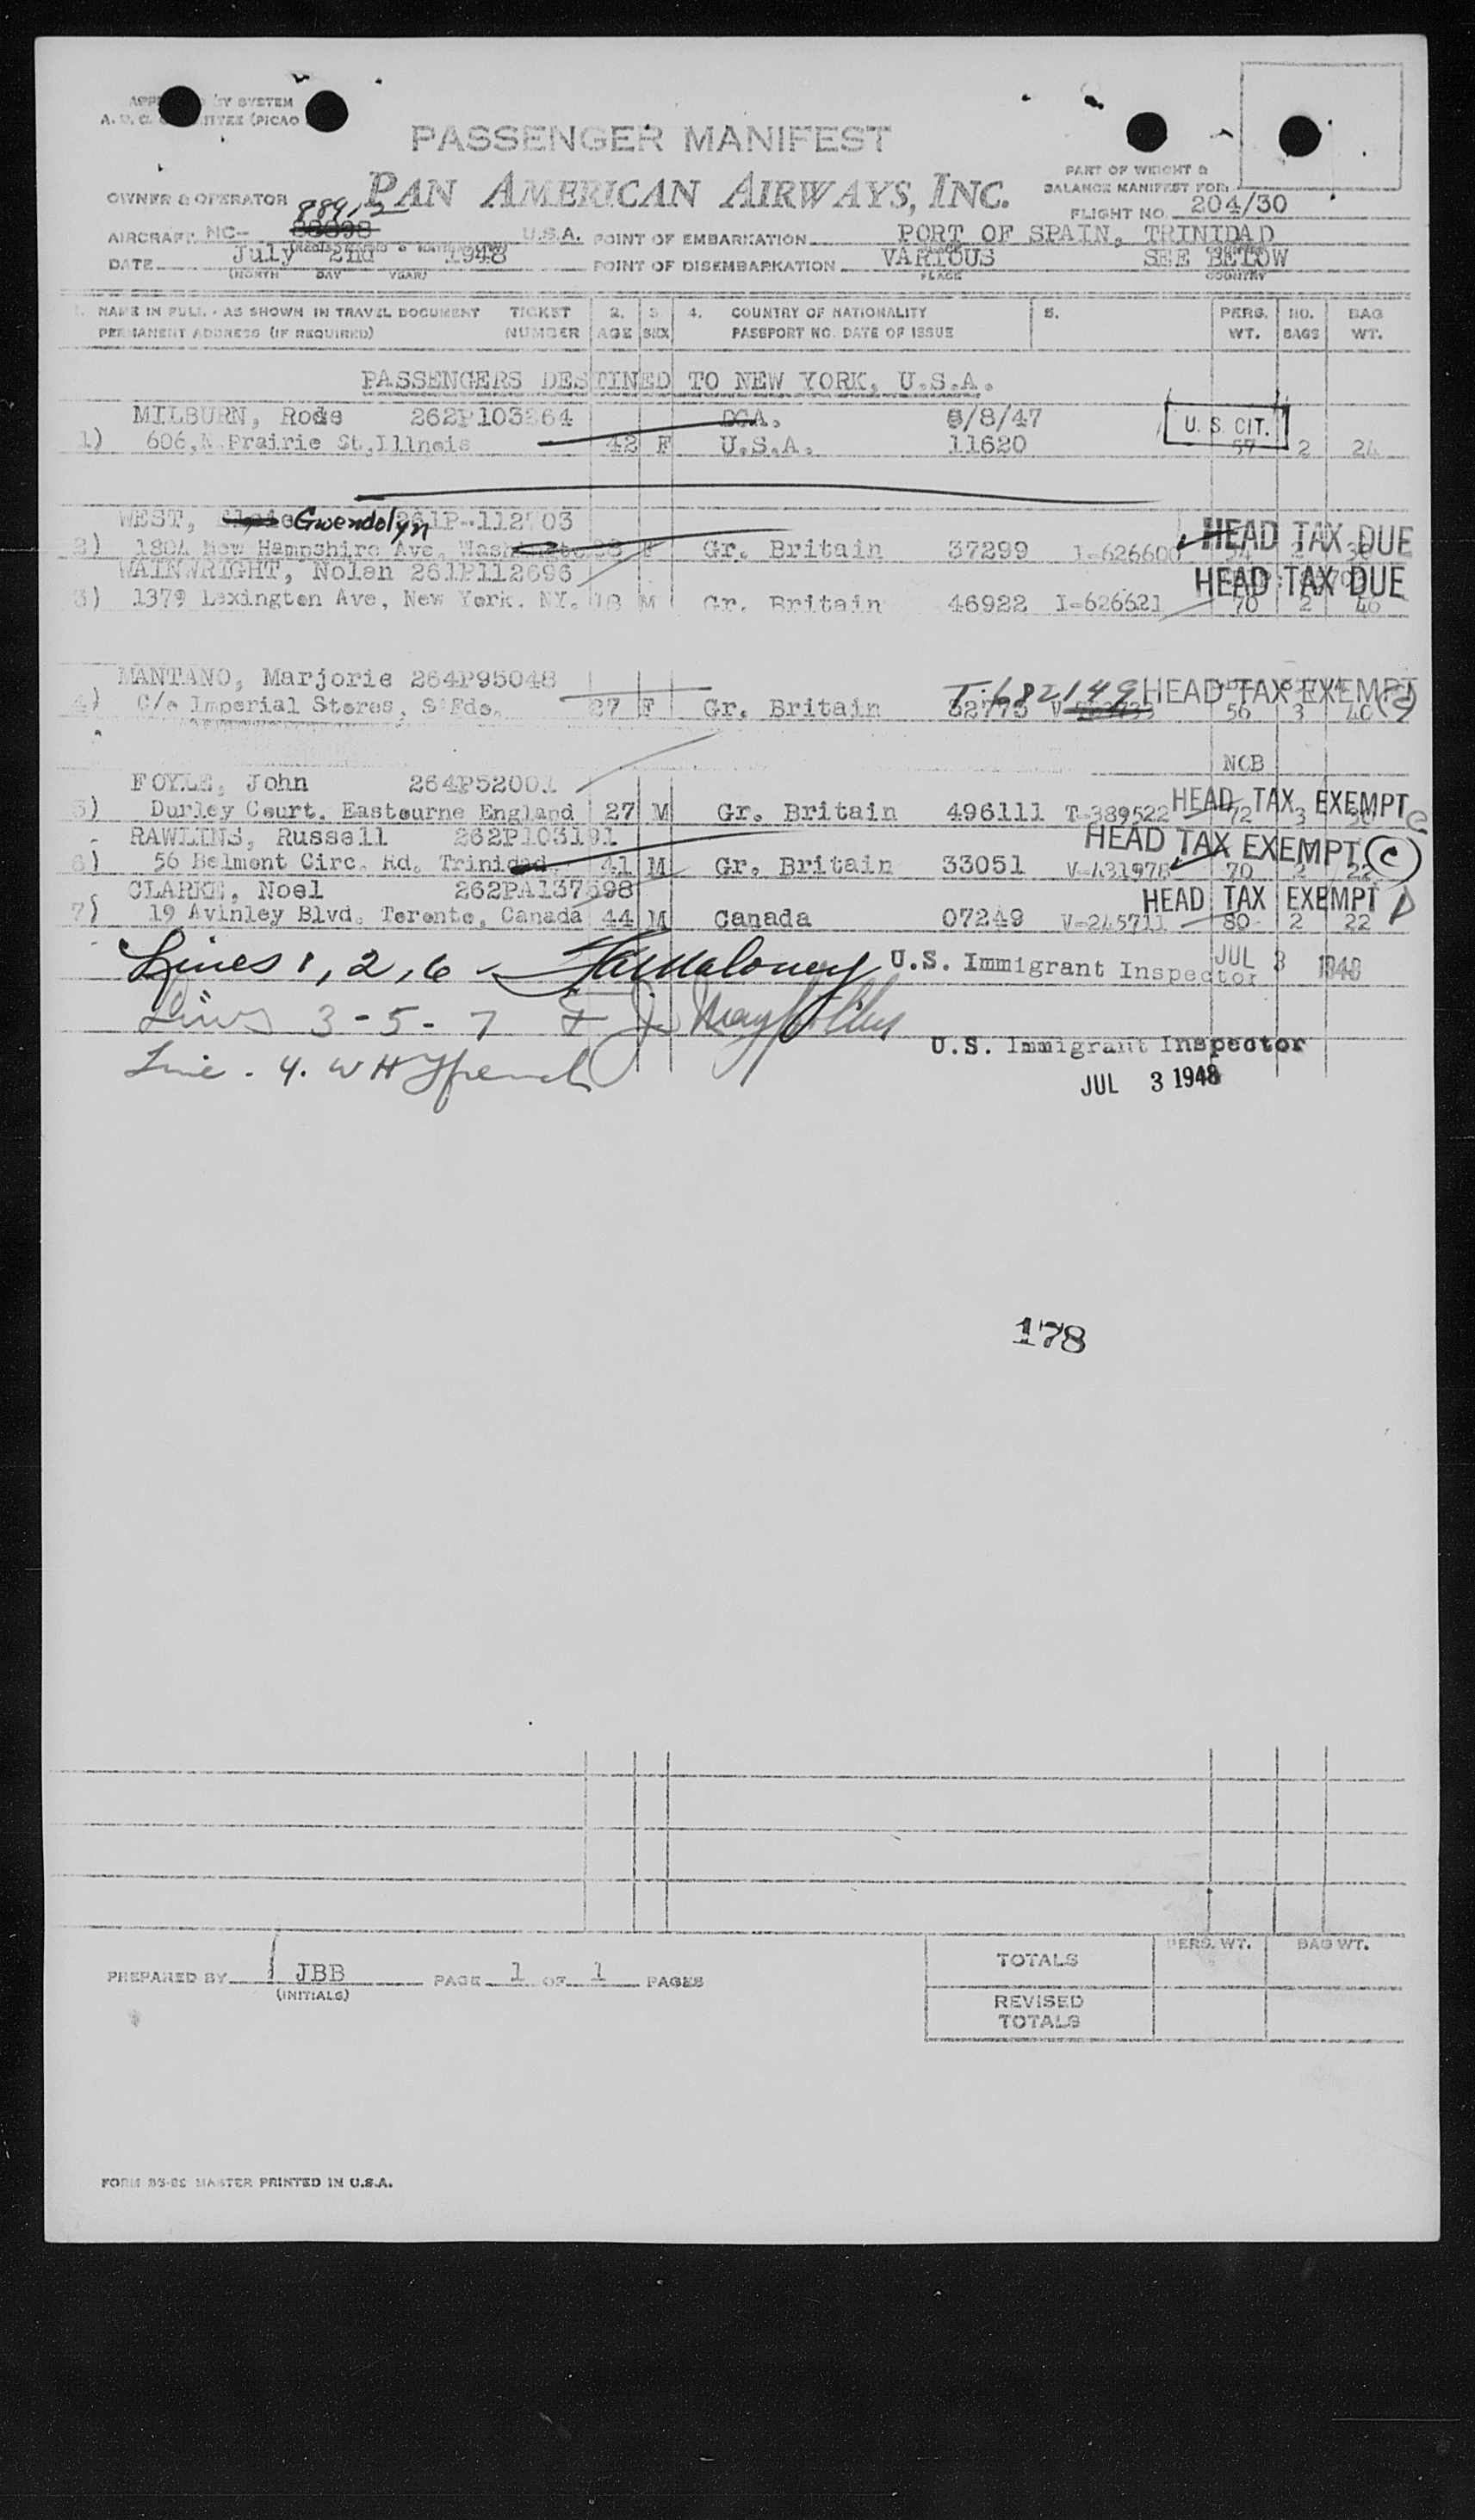 BY SYSTEM
(PICAO
PASSENGER MANIFEST
PART OF WEIGHT &
BALANCE MANIFEST FOR:
OWNER & OPERATOR PAN AMERICAN AIRWAYS, INC.
FLIGHT NO. 204/30
AIRCRAFT NC- U.S.A. POINT OF EMBARKATION PORT OF SPAIN, TRINIDAD
DATE July 2nd 1948 POINT OF DISEMBARKATION VARIOUS SEE BELOW
(MONTH DAY YEAR) PLACE COUNTRY
1. NAME IN FULL - AS SHOWN IN TRAVEL DOCUMENT TICKET 2. 3 4. COUNTRY OF NATIONALITY 5. PERS. NO. BAG
PERMANENT ADDRESS (IF REQUIRED) NUMBER AGE SEX PASSPORT NO. DATE OF ISSUE WT. BAGS WT.
PASSENGERS DESTINED TO NEW YORK, U.S.A.
MILBURN, 8/8/47 U. S. CIT.
1) 606,N.Prairie St,Illnois 42 F U.S.A. 11620 57 2 24
WEST, Gwendolyn
2) New Hampshire Ave, F Gr. Britain 37299 I-626600 HEAD TAX DUE
WAINWRIGHT, Nolan 261P112696 HEAD TAX DUE
3) Lexington Ave, New York. NY. 18 M Gr. Britain 46922 I-626621 70 2 40
MANTANO, Marjorie 264P95048 T-682149 HEAD TAX EXEMPT
4) C/o Imperial Stores, S'Fdo. 27 F Gr. Britain 32773 56 3 40
NOB
FOYLE, John 264P52001
5) Durley Court. Eastourne England 27 M Gr. Britain 496111 T-389522 HEAD TAX EXEMPT 72 3
RAWLINS, Russell 262P103191 HEAD TAX EXEMPT (C)
6) 56 Belmont Circ. Rd. Trinidad. 41 M Gr. Britain 33051 V-431978 70 2 22
CLARKE, Noel 262PA137598 HEAD TAX EXEMPT
7) 19 Avinley Blvd. Toronto, Canada 44 M Canada 07249 V-245711 80 2 22
Lines 1, 2, 6 U.S. Immigrant Inspector JUL 3 1948
Lines 3-5-7
U.S. Immigrant Inspector
Line. 4. W H
JUL 3 1948
178
PREPARED BY JBB PAGE 1 OF 1 PAGES
(INITIALS)
TOTALS PERS. WT. BAG WT.
REVISED
TOTALS
MASTER PRINTED IN U.S.A.